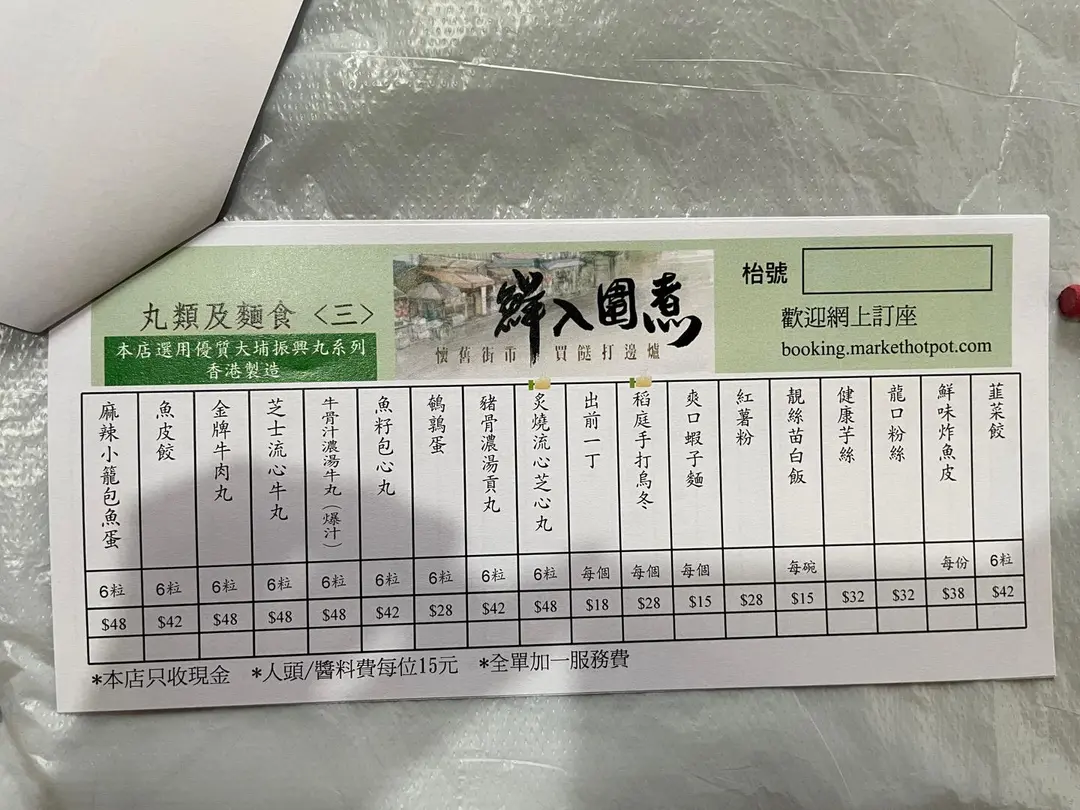 丸類及麵食〈三〉
本店選用優質大埔振興丸系列
香港製造
鮮入圍煮
懷舊街市 買餸打邊爐
枱號
歡迎網上訂座
booking.markethotpot.com
麻辣小籠包魚蛋 6粒 $48
魚皮餃 6粒 $42
金牌牛肉丸 6粒 $48
芝士流心牛丸 6粒 $48
牛骨汁濃湯牛丸（爆汁） 6粒 $48
魚籽包心丸 6粒 $42
鵪鶉蛋 6粒 $28
豬骨濃湯貢丸 6粒 $42
炙燒流心芝心丸 6粒 $48
出前一丁 每個 $18
稻庭手打烏冬 每個 $28
爽口蝦子麵 每個 $15
紅薯粉 $28
靚絲苗白飯 每碗 $15
健康芋絲 $32
龍口粉絲 $32
鮮味炸魚皮 每份 $38
韮菜餃 6粒 $42
*本店只收現金 *人頭/醬料費每位15元 *全單加一服務費